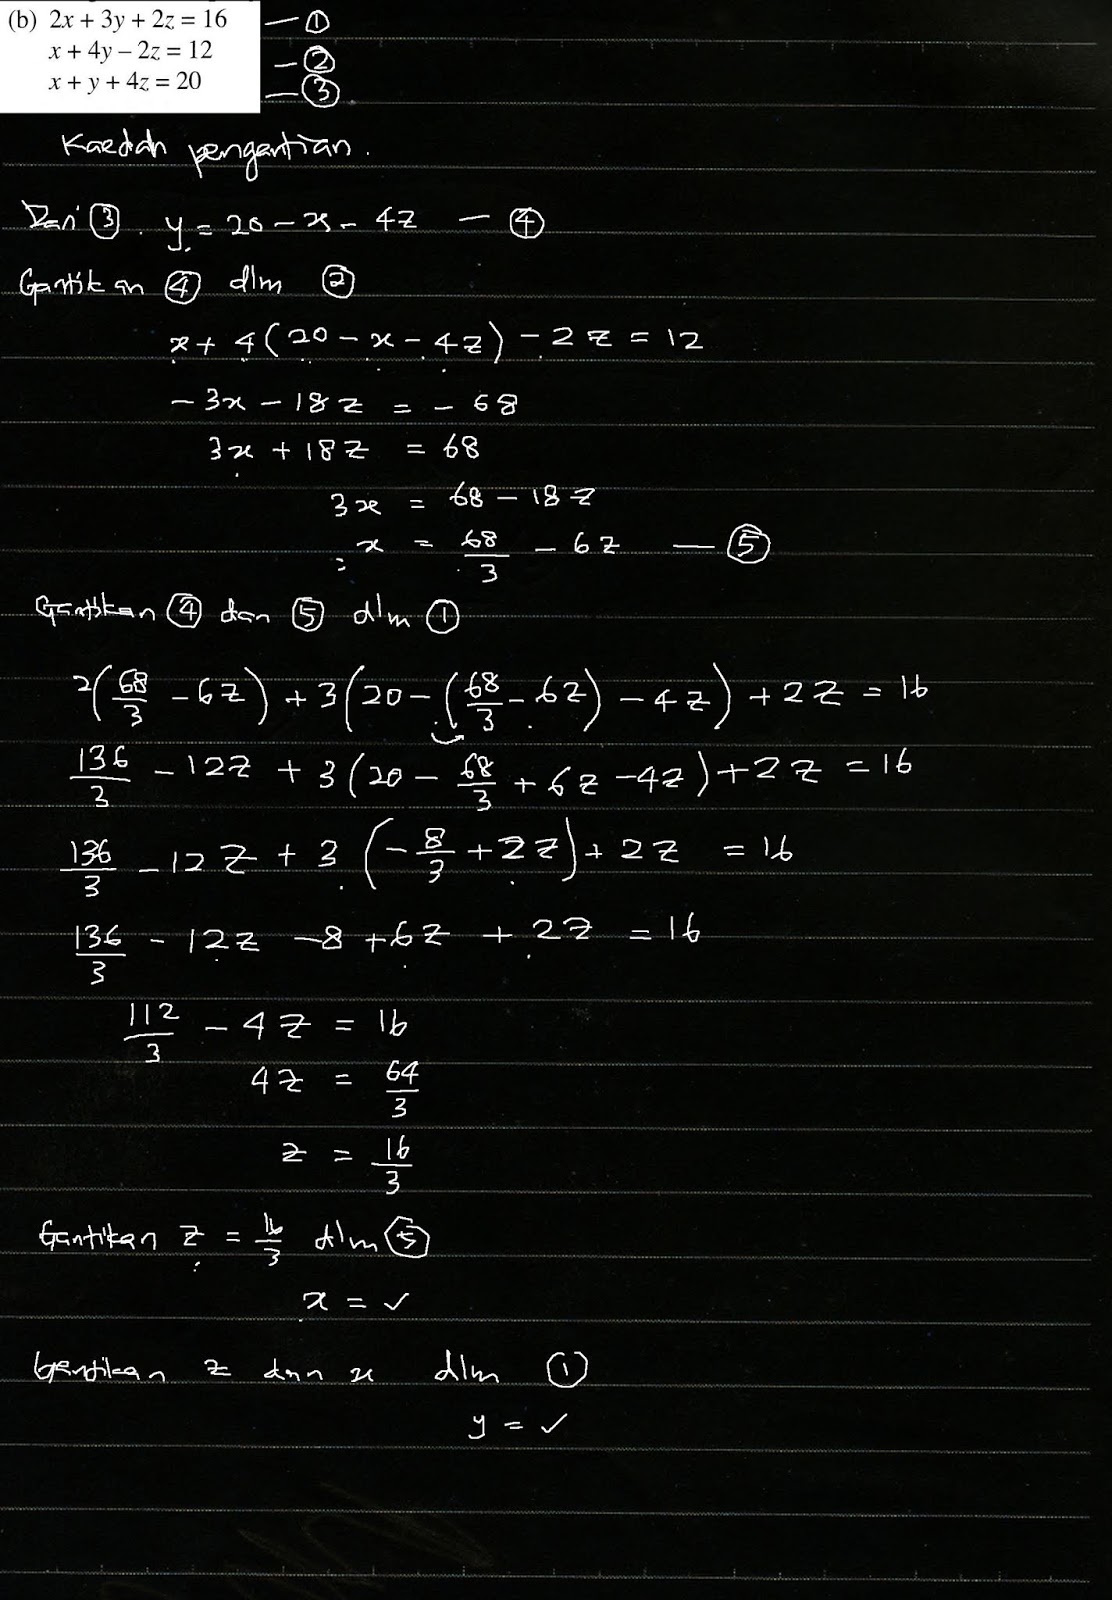 (b) 2x + 3y + 2z = 16 — ①
x + 4y – 2z = 12 — ②
x + y + 4z = 20 — ③
Kaedah pengantian.
Dari ③. y = 20 - x - 4z — ④
Gantikan ④ dlm ②
x + 4(20 - x - 4z) - 2z = 12
-3x - 18z = -68
3x + 18z = 68
3x = 68 - 18z
x = 68/3 - 6z — ⑤
Gantikan ④ dan ⑤ dlm ①
2(68/3 - 6z) + 3(20 - (68/3 - 6z) - 4z) + 2z = 16
136/3 - 12z + 3(20 - 68/3 + 6z - 4z) + 2z = 16
136/3 - 12z + 3(-8/3 + 2z) + 2z = 16
136/3 - 12z - 8 + 6z + 2z = 16
112/3 - 4z = 16
4z = 64/3
z = 16/3
Gantikan z = 16/3 dlm ⑤
x = ✓
Gantikan z dan x dlm ①
y = ✓